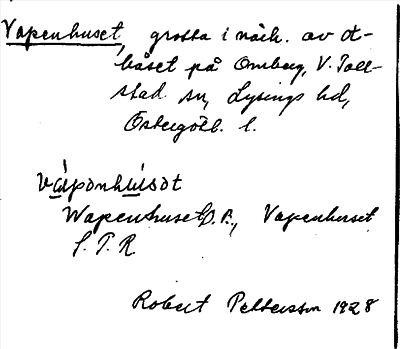 Vapenhuset, grotta i närh. av ut-
båset på Omberg, V. Toll-
stad sn, Lysings hd,
Östergötl. l.
våponhusot
Wapenhuset D.A., Vapenhuset
S.T.R.
Robert Pettersson 1928